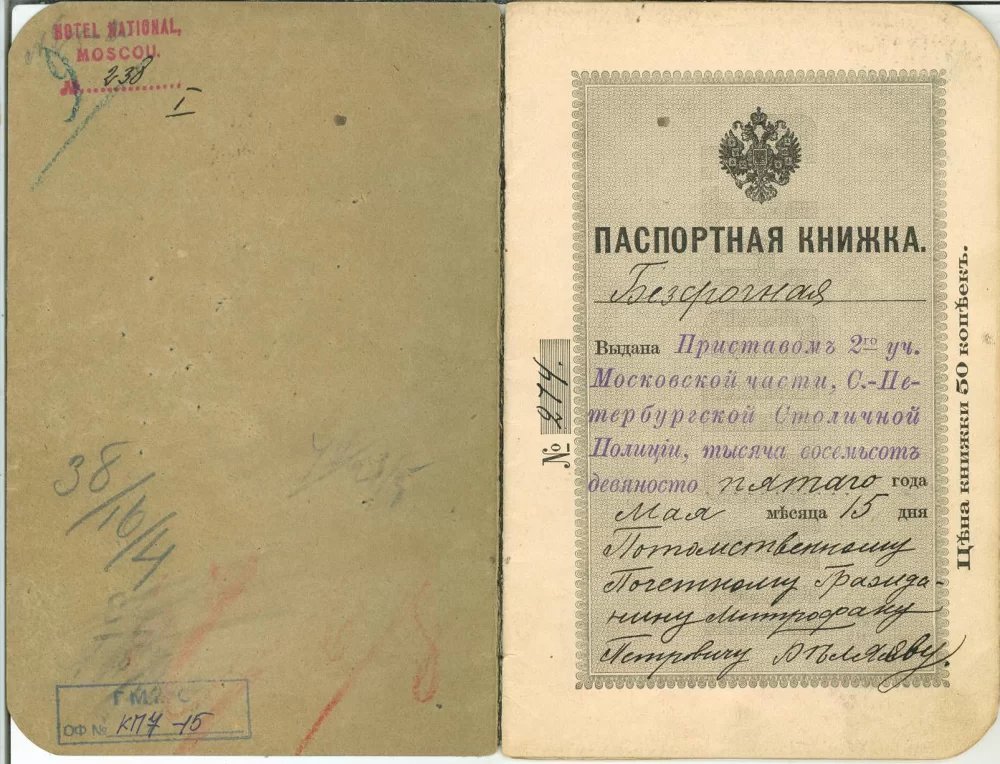 HOTEL NATIONAL,
MOSCOU.
№ 238
I
38/16/4
Г.М.
ОФ № КП7-15
ПАСПОРТНАЯ КНИЖКА.
Безсрочная
Выдана Приставомъ 2го уч.
Московской части, С.-Пе-
тербургской Столичной
Полиціи, тысяча восемьсотъ
девяносто пятаго года
Мая мѣсяца 15 дня
Потомственному
Почетному Гражда-
нину Митрофану
Петровичу Бѣляеву.
№ 274.
Цѣна книжки 50 копѣекъ.